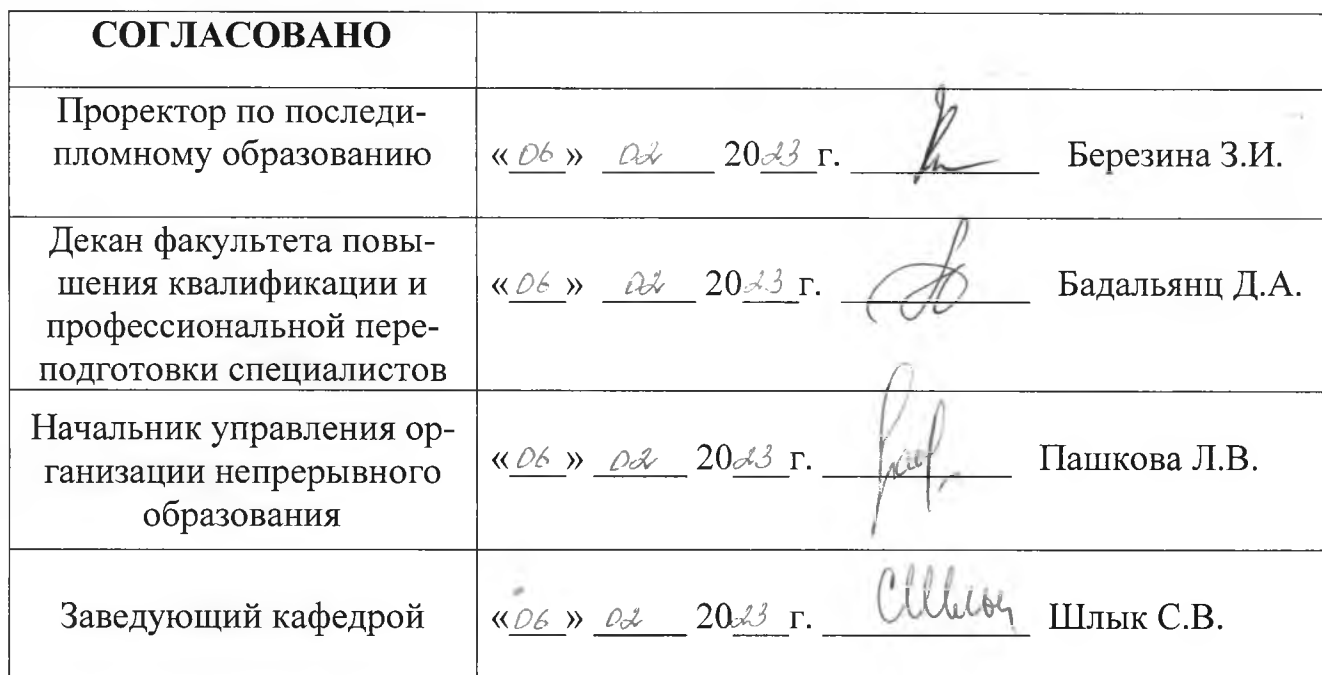 СОГЛАСОВАНО
Проректор по последи-
пломному образованию
«06» 02 2023 г. Березина З.И.
Декан факультета повы-
шения квалификации и
профессиональной пере-
подготовки специалистов
«06» 02 2023 г. Бадальянц Д.А.
Начальник управления ор-
ганизации непрерывного
образования
«06» 02 2023 г. Пашкова Л.В.
Заведующий кафедрой
«06» 02 2023 г. Шлык С.В.